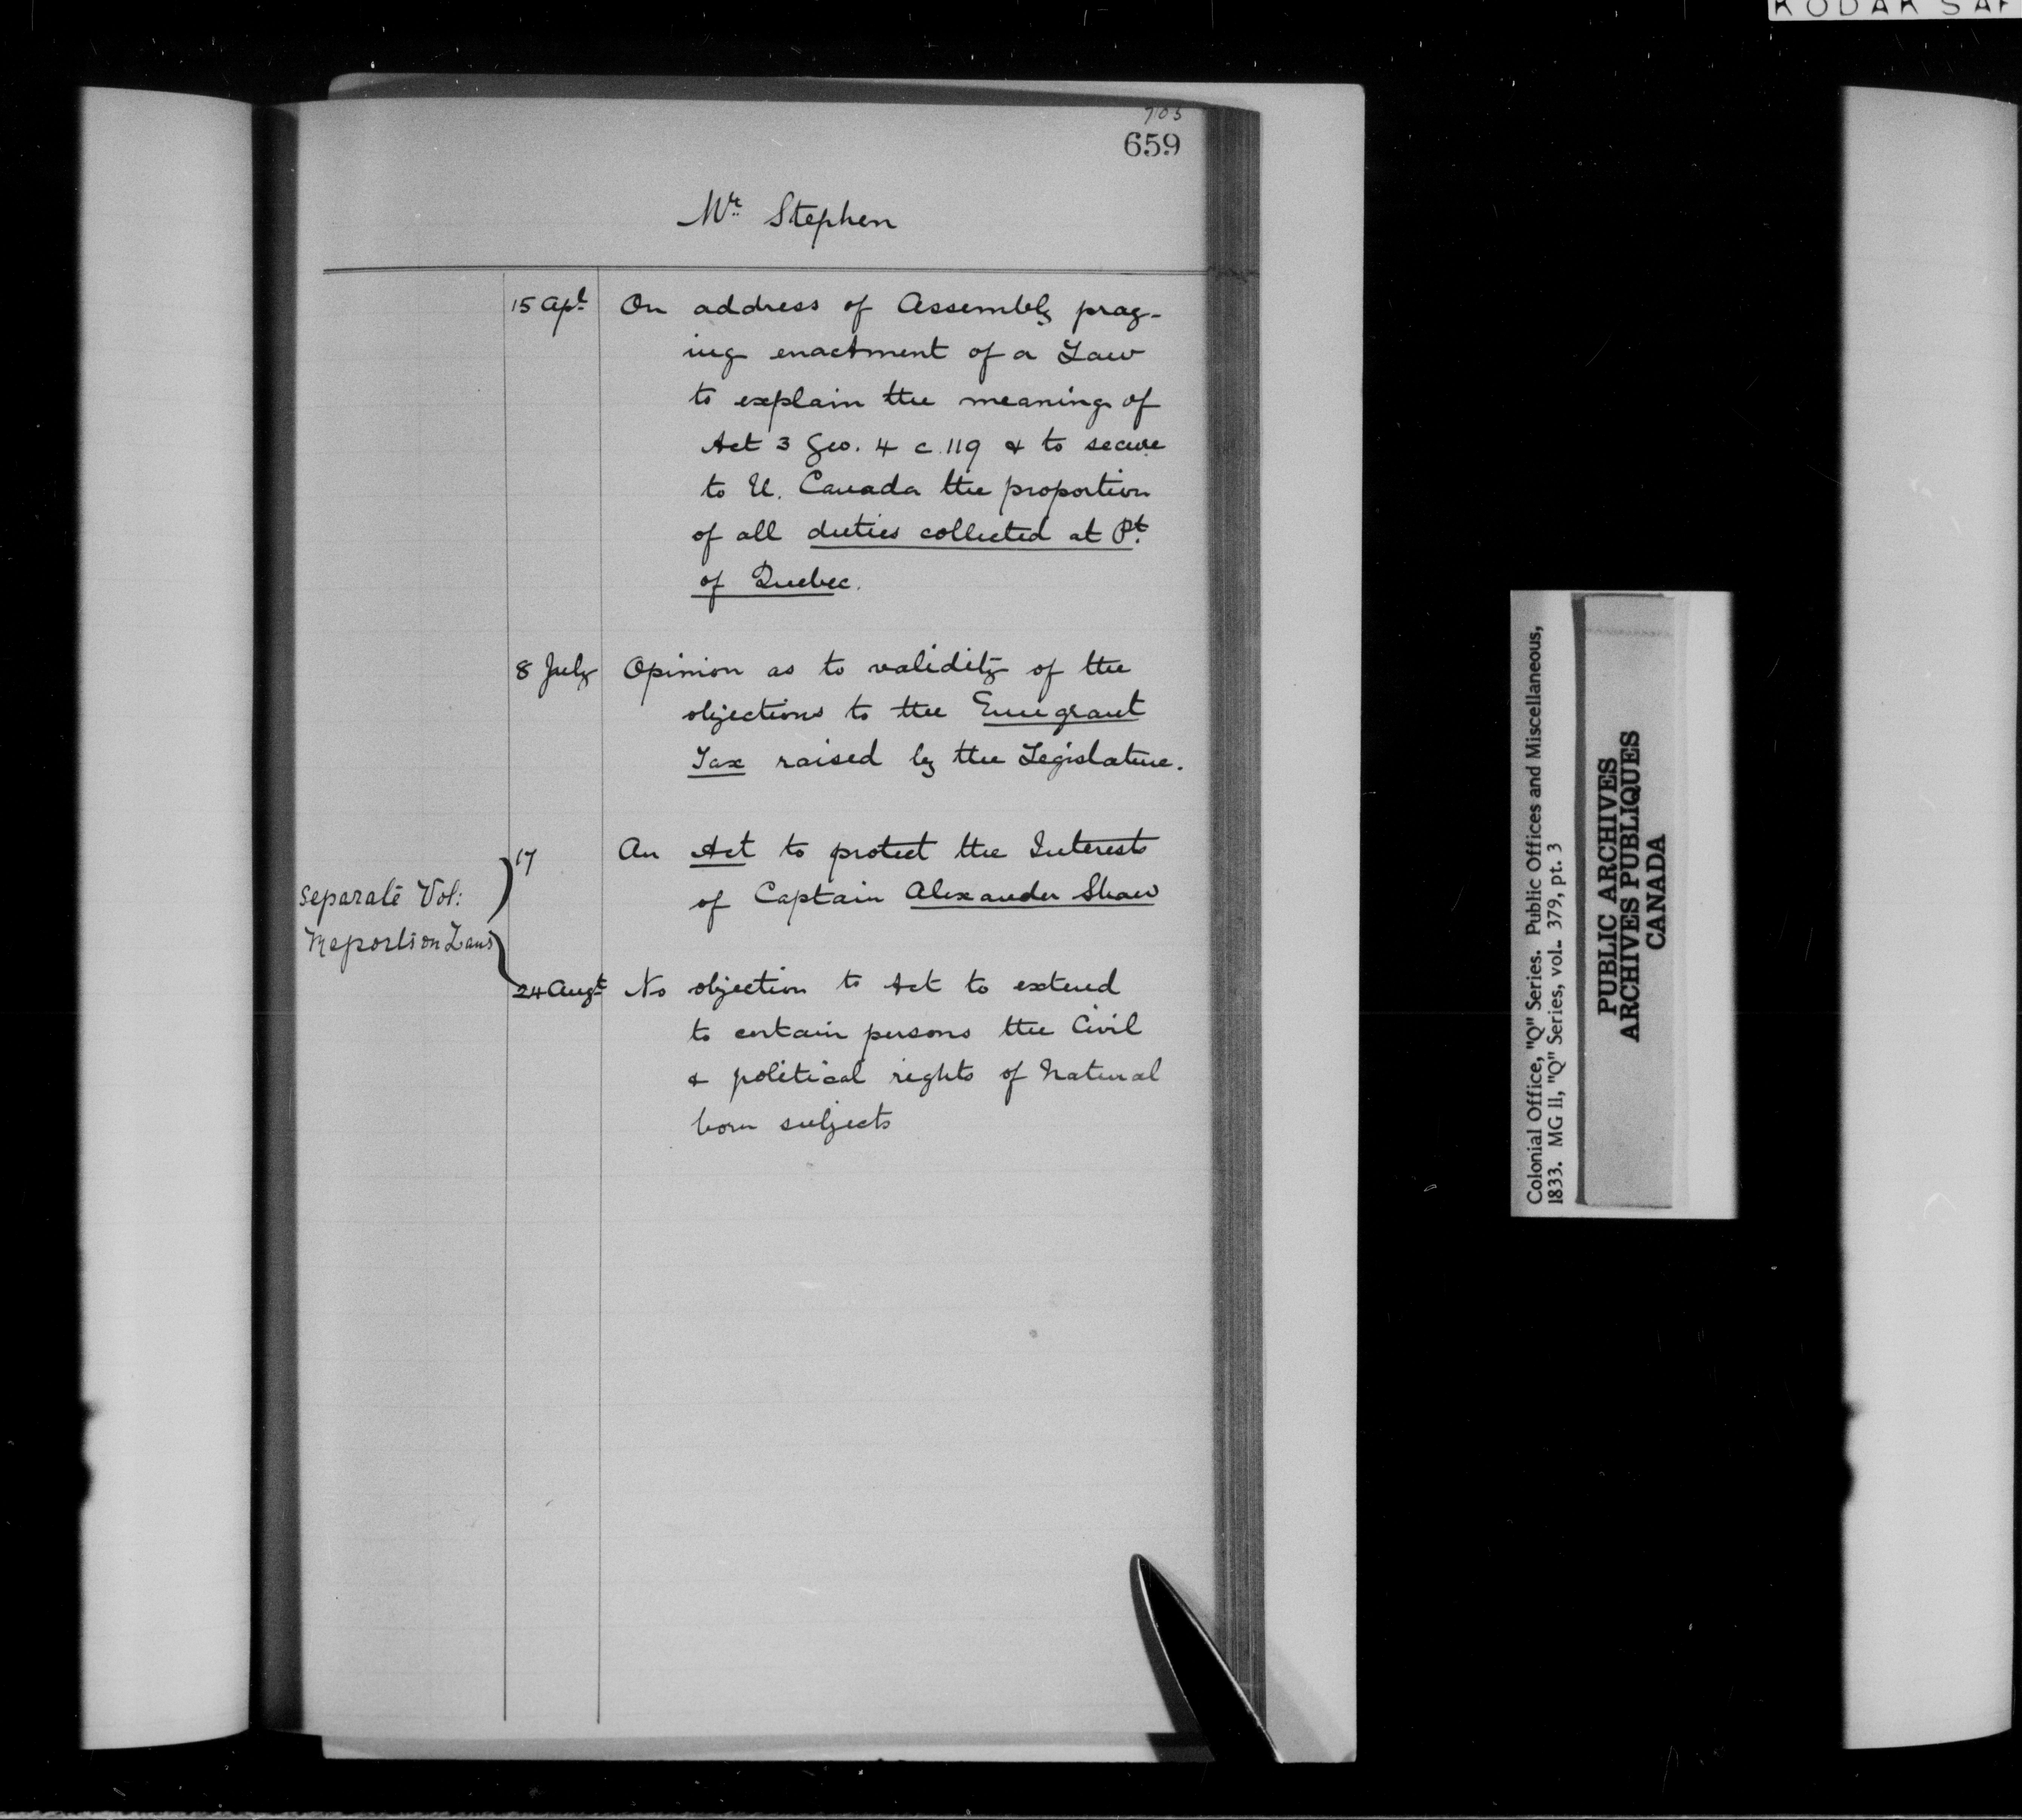 KODAK SAF
703
659
Mr. Stephen
15 Apl. On address of Assembly pray-
ing enactment of a Law
to explain the meaning of
Act 3 Geo. 4 c. 119 & to secure
to U. Canada the proportion
of all duties collected at Pt.
of Quebec.
8 July Opinion as to validity of the
objections to the Emigrant
Tax raised by the Legislature.
17 An Act to protect the Interests
of Captain Alexander Shaw
separate Vol:
Reports on Laws
24 Augt. No objection to Act to extend
to certain persons the Civil
& political rights of Natural
born subjects
Colonial Office, "Q" Series. Public Offices and Miscellaneous,
1833. MG 11, "Q" Series, vol. 379, pt. 3
PUBLIC ARCHIVES
ARCHIVES PUBLIQUES
CANADA